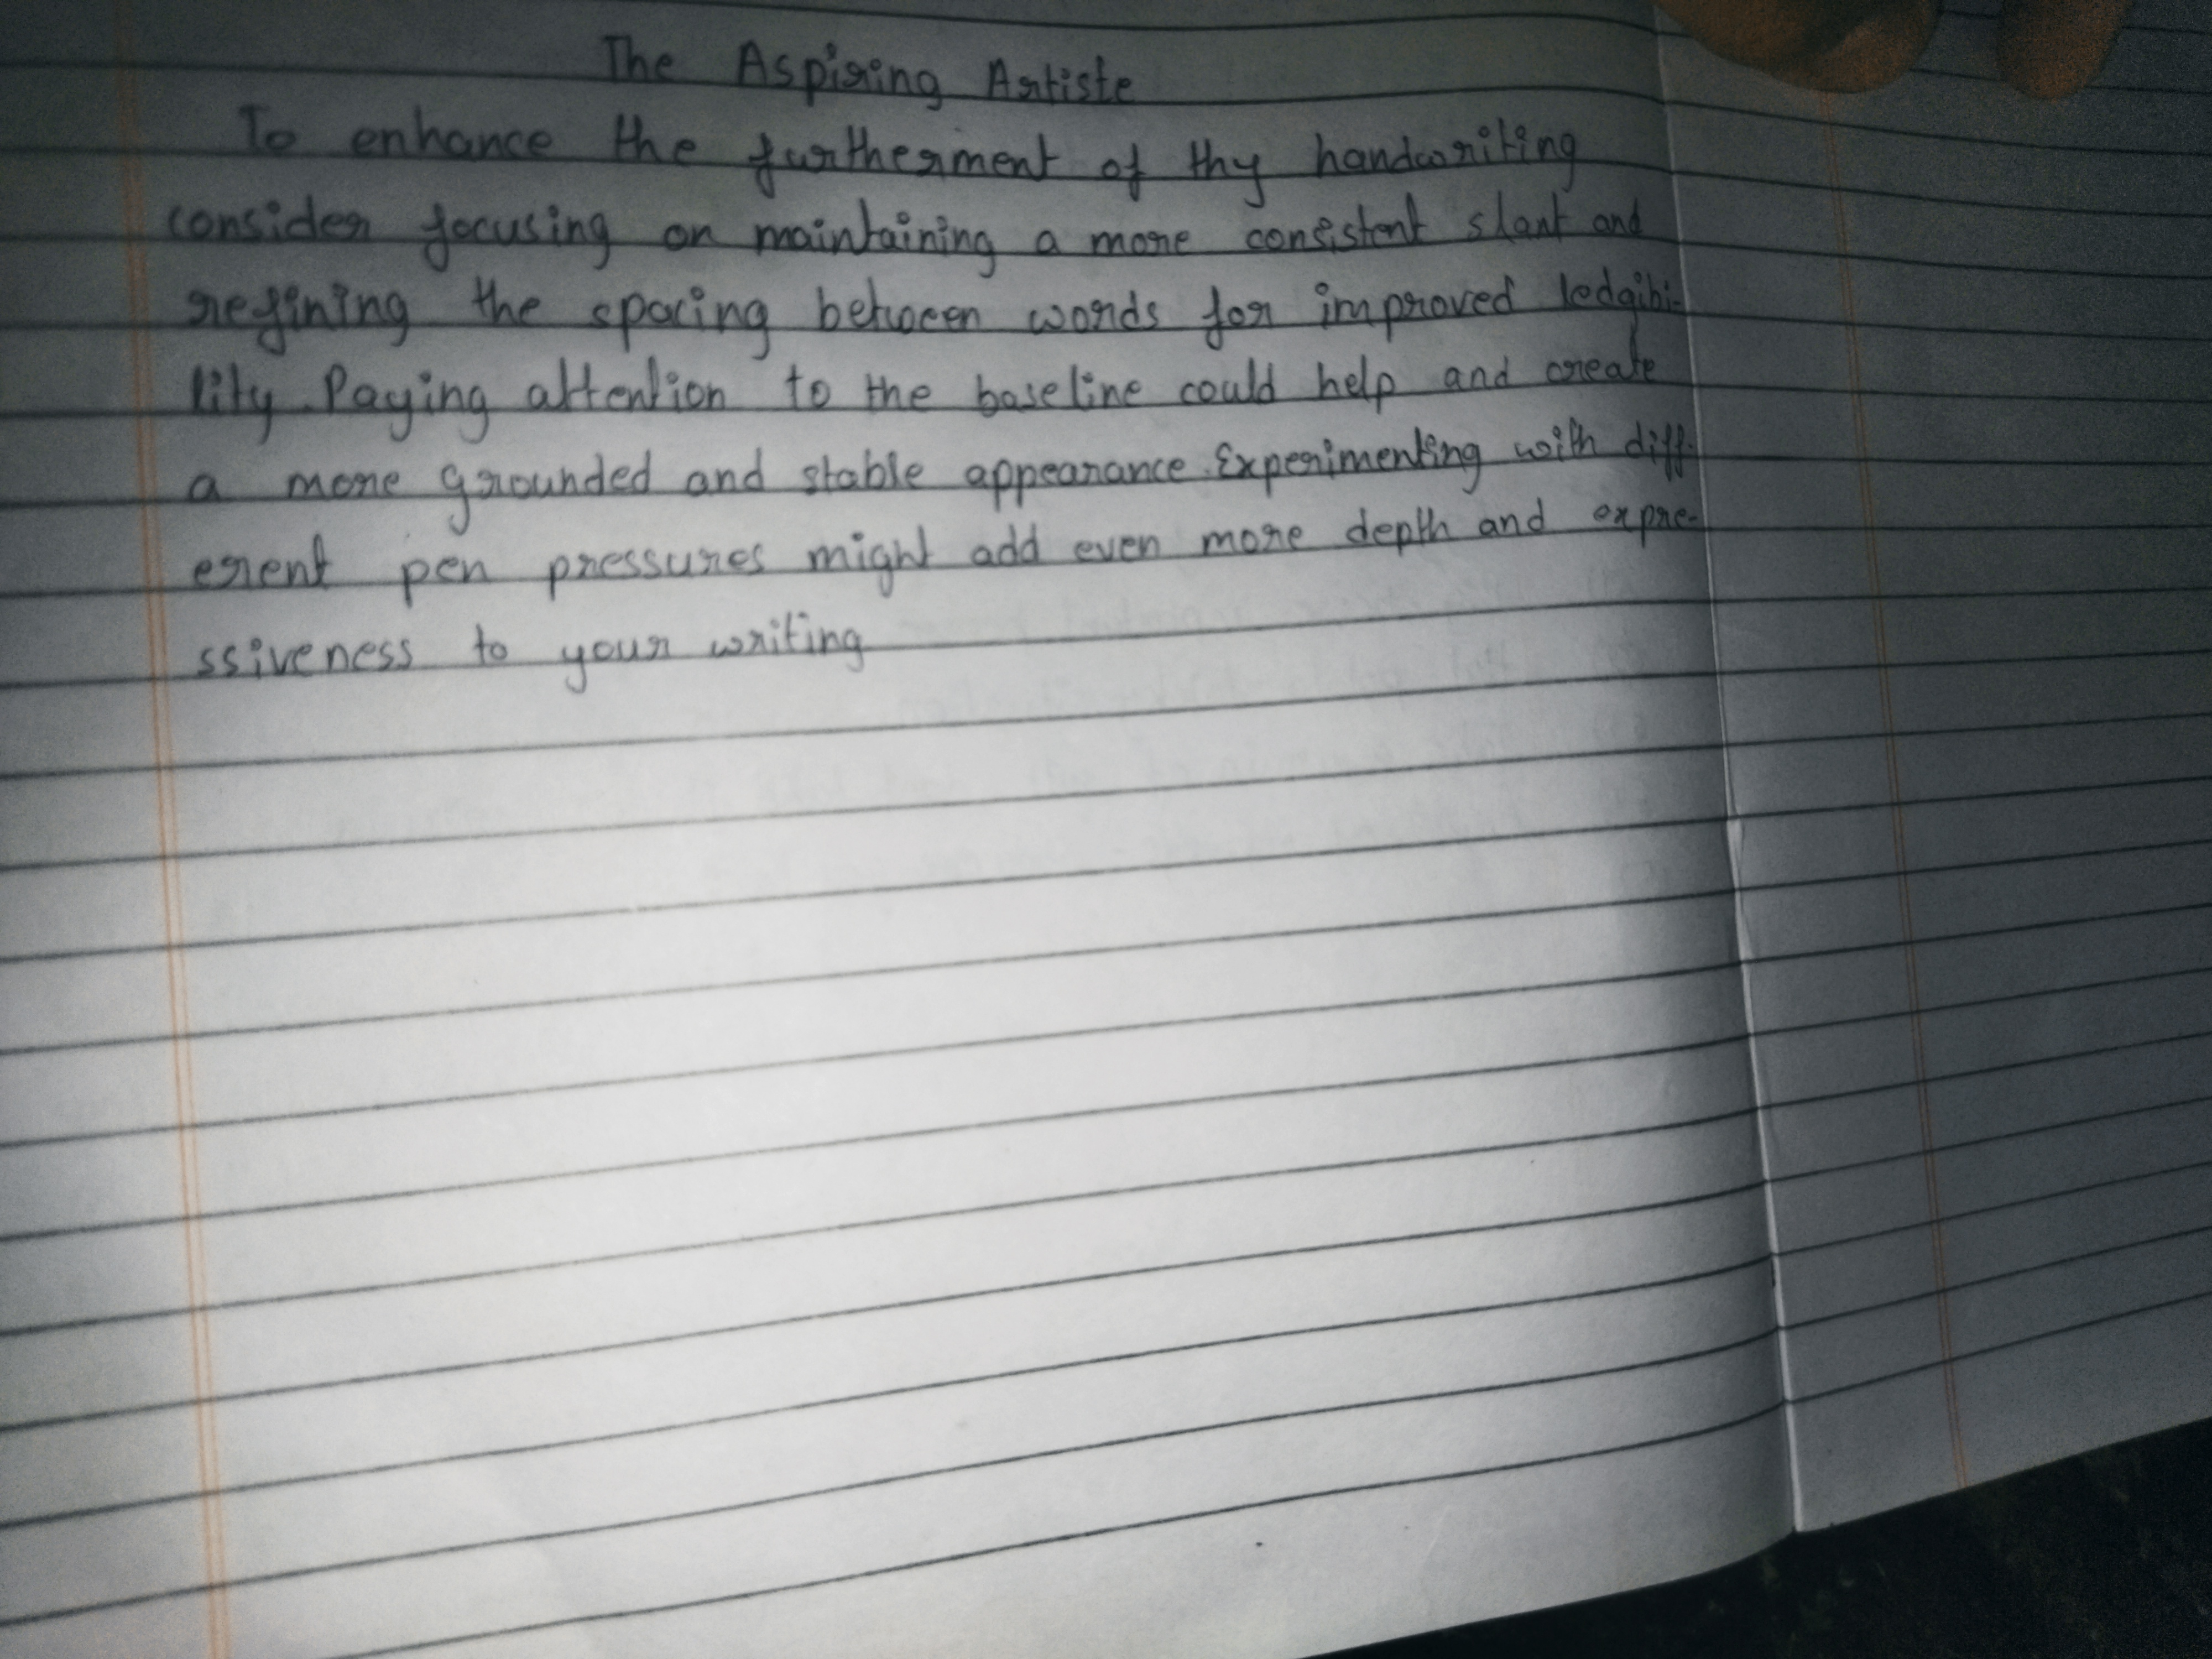 The Aspiring Artiste
To enhance the furtherment of thy handwriting
consider focusing on maintaining a more consistent slant and
refining the spacing between words for improved ledgibi-
lity. Paying attention to the baseline could help and create
a more grounded and stable appearance. Experimenting with diff-
erent pen pressures might add even more depth and expre-
ssiveness to your writing